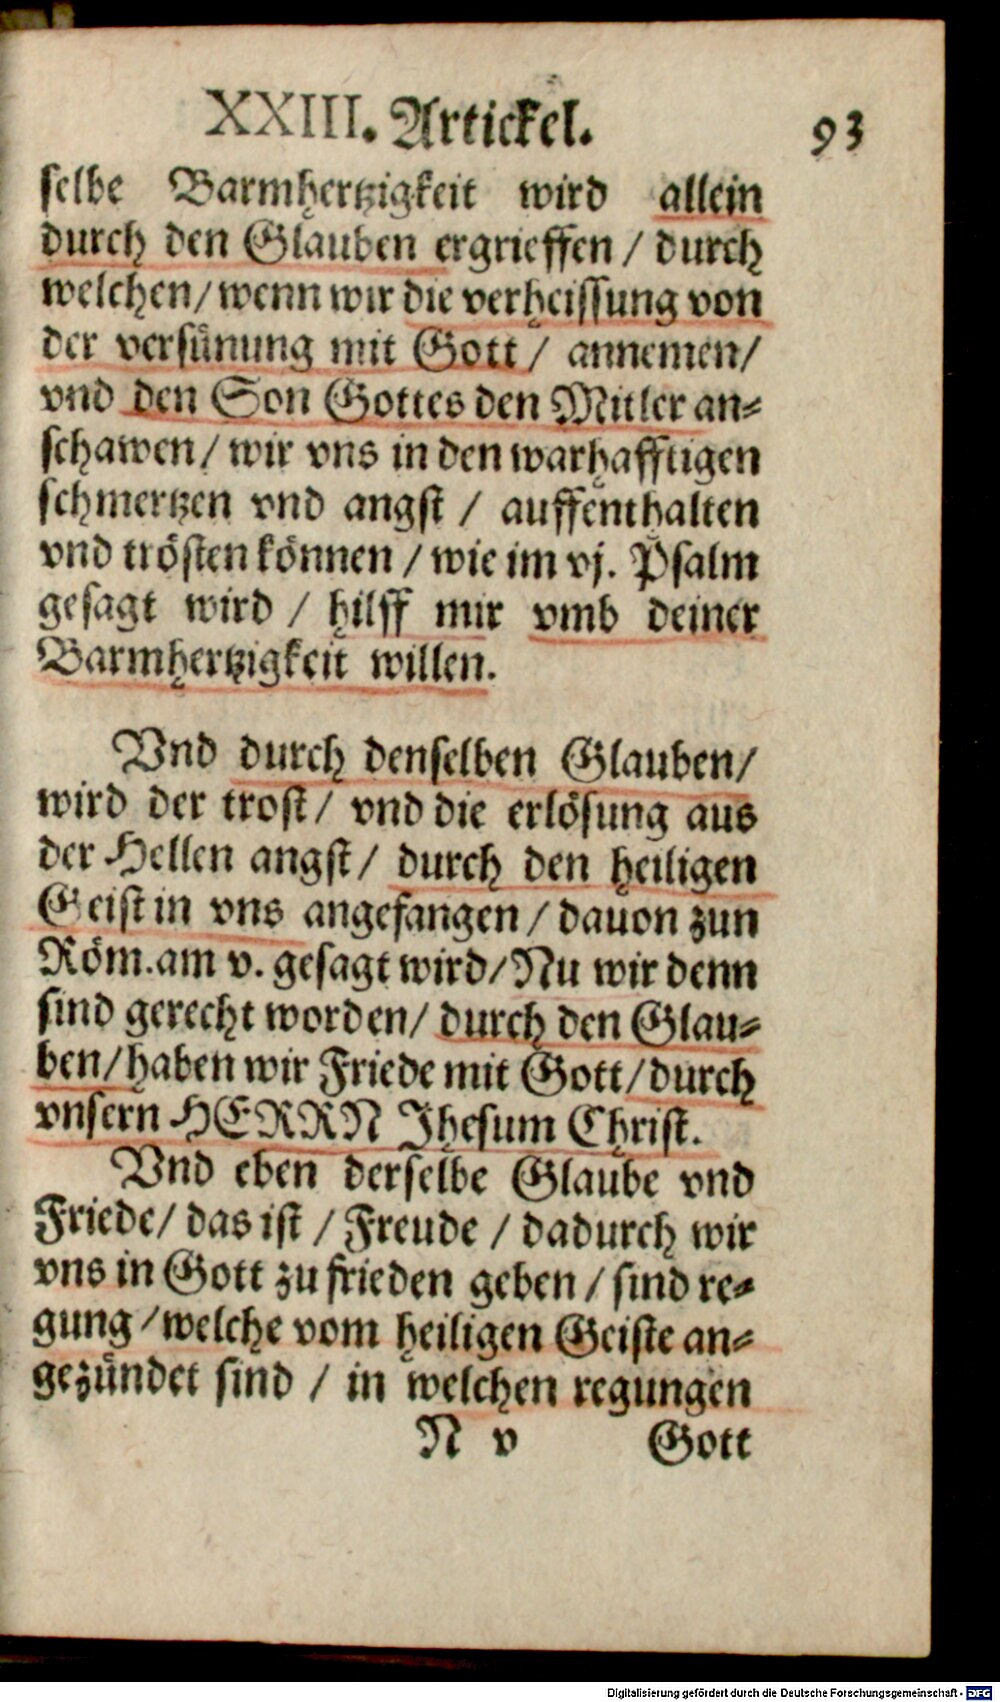 XXIII. Artickel. 93
selbe Barmhertzigkeit wird allein
durch den Glauben ergrieffen / durch
welchen / wenn wir die verheissung von
der versünung mit Gott / annemen /
vnd den Son Gottes den Mitler an-
schawen / wir vns in den warhafftigen
schmertzen vnd angst / auffenthalten
vnd trösten können / wie im vj. Psalm
gesagt wird / hilff mir vmb deiner
Barmhertzigkeit willen.
Vnd durch denselben Glauben /
wird der trost / vnd die erlösung aus
der Hellen angst / durch den heiligen
Geist in vns angefangen / dauon zun
Röm. am v. gesagt wird / Nu wir denn
sind gerecht worden / durch den Glau-
ben / haben wir Friede mit Gott / durch
vnsern HERRN Jhesum Christ.
Vnd eben derselbe Glaube vnd
Friede / das ist / Freude / dadurch wir
vns in Gott zu frieden geben / sind re-
gung / welche vom heiligen Geiste an-
gezündet sind / in welchen regungen
N v Gott
Digitalisierung gefördert durch die Deutsche Forschungsgemeinschaft - DFG